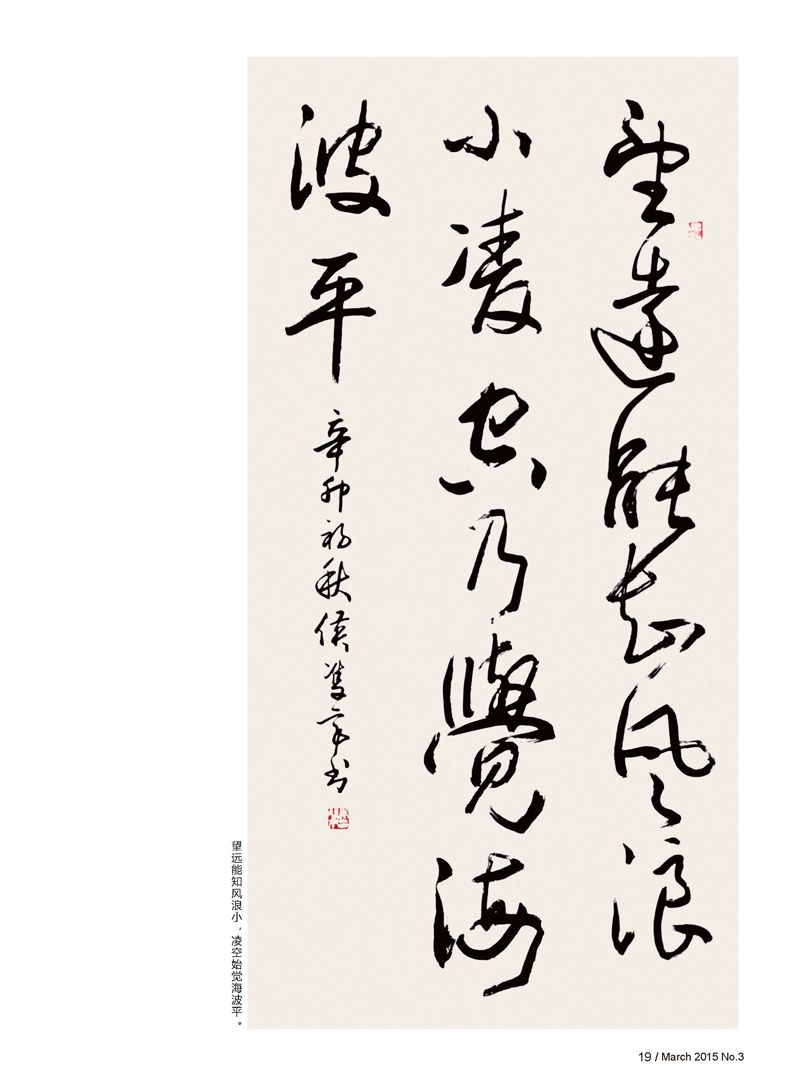 望遠能知風浪
小凌空乃覺海
波平
辛卯初秋侯书
望远能知风浪小，凌空始觉海波平。
19 / March 2015 No.3